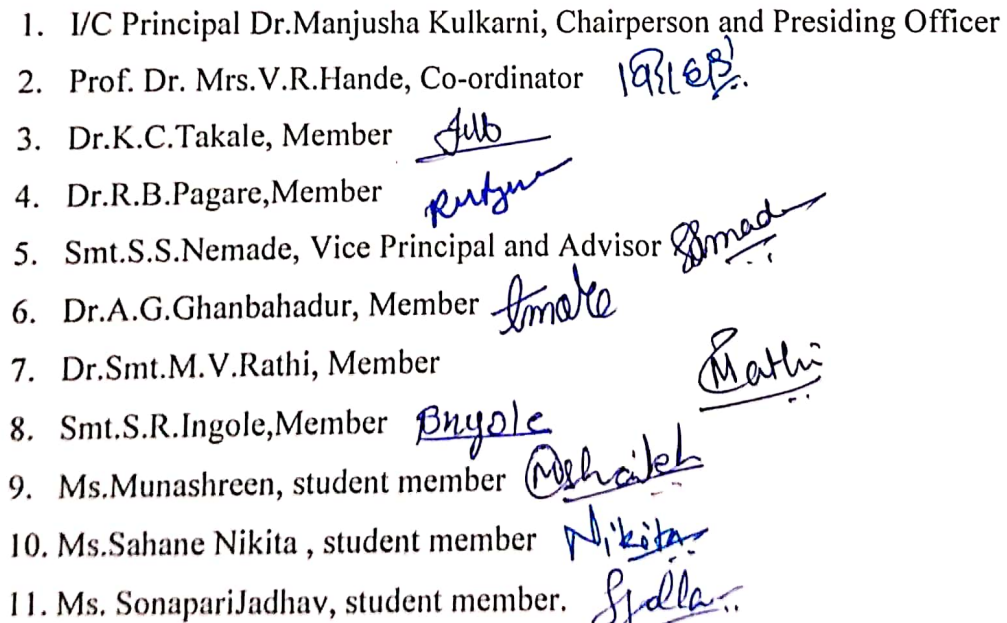 1. I/C Principal Dr.Manjusha Kulkarni, Chairperson and Presiding Officer
2. Prof. Dr. Mrs.V.R.Hande, Co-ordinator
3. Dr.K.C.Takale, Member
4. Dr.R.B.Pagare,Member
5. Smt.S.S.Nemade, Vice Principal and Advisor
6. Dr.A.G.Ghanbahadur, Member
7. Dr.Smt.M.V.Rathi, Member Rathi
8. Smt.S.R.Ingole,Member
9. Ms.Munashreen, student member
10. Ms.Sahane Nikita , student member Nikita
11. Ms. SonapariJadhav, student member.